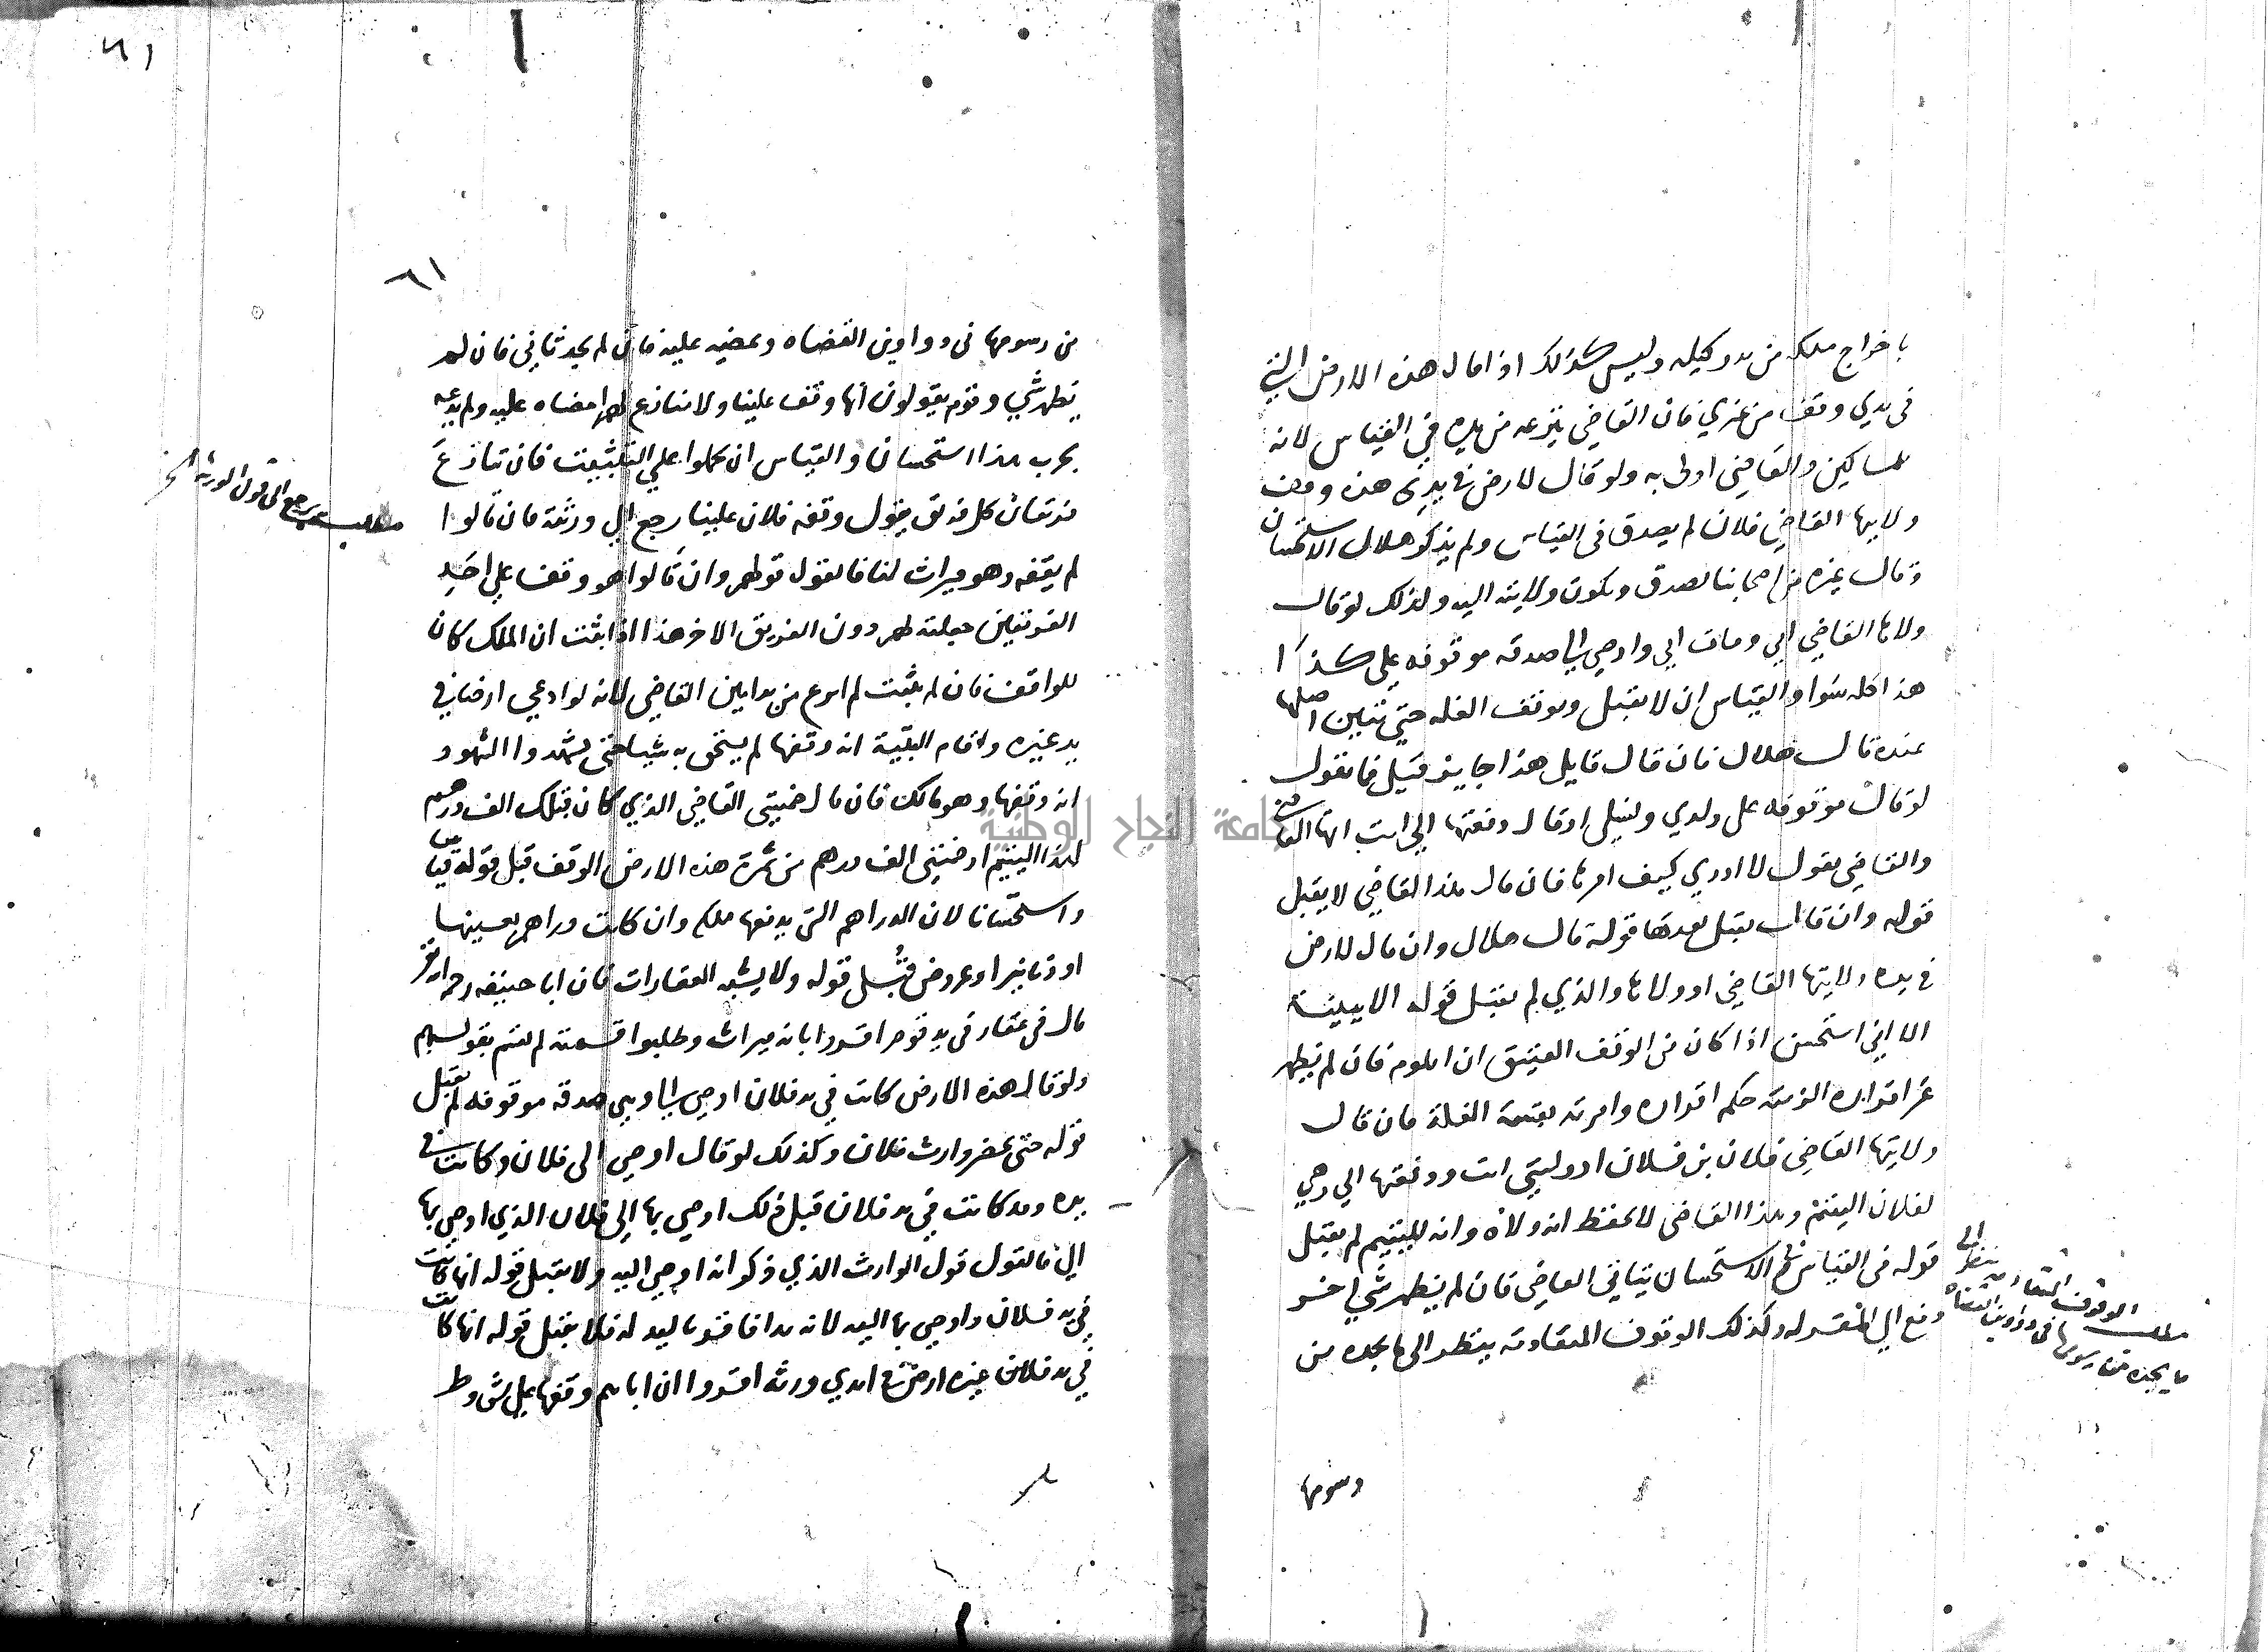 باخراج ملكه من يد وكيله وليس كذلك اذا قال هذه الارض التي
في يدي وقف من غيري فان القاضي ينزعه من يده في القياس لانه
للمساكين والقاضي اولى به ولو قال لارض في يدي هذه وقف
ولانيها القاضي فلان لم يصدق في القياس ولم يذكر هلال الاستحسان
وقال غيره من اصحابنا يصدق ويكون ولايته اليه وكذلك لو قال
ولاها القاضي ابي ومات ابي واوصي الي صدقه موقوفه علي كذا
هذا كله سوا والقياس ان لا يقبل ويوقف الغله حتي تبين اصلها
عنده قال هلال فان قال قايل هذا جايز قيل فما تقول
لو قال موقوفه على ولدي ونسلي او قال دفعتها الي انت ايها القاضي
والقاضي يقول لا ادري كيف امرها فان قال هذا القاضي لا يقبل
قوله وان قال يقبل بعدها قوله قال هلال وان قال لارض
في يده ولانيها القاضي او ولاها والذي لم يقبل قوله الا ببينة
الا اني استحسن اذا كان في الوقف العتيق ان اتلوم فان لم يظهر
غير اقراره الزمته حكم اقراره وامرته بقسمة الغلة فان قال
ولانيها القاضي فلان بن فلان او وليتني انت ودفعتها الي وهي
لفلان اليتيم وهذا القاضي لا يحفظ انه ولاه وانه لليتيم لم يقبل
قوله في القياس وفي الاستحسان يتاني القاضي فان لم يظهر شي اخر
دفع الي المقر له وكذلك الوقوف المتقادمة ينظر الى ما يجده من
مطلب الوقوف المتقادمة ينظر الى
ما يجده من رسومها في دواوين القضاه
رسومها
٦١
٦١
من رسومها في دواوين القضاه ويمضيه عليه فان لم يجد تاني فان لم
يظهر شي وقوم يقولون انها وقف علينا ولا منازع لهم امضاه عليه ولم يدعه
يخرب هذا استحسان والقياس ان يحملوا علي التثبيت فان تنازع
فريقان كل فريق يقول وقفه فلان علينا رجع الي ورثته فان قالوا
لم يقفه وهو ميراث لنا فالقول قولهم وان قالوا هو وقف علي احد
الفريقين جعلته لهم دون الفريق الاخر هذا اذا ثبت ان الملك كان
للواقف فان لم يثبت لم انزع من يد امين القاضي لانه لو ادعي ارضا في
يد غيره واقام البينة انه وقفها لم يستحق به شيا حتى يشهدوا الشهود
انه وقفها وهو مالك فان قال ضيتي القاضي الذي كان قبلك الف درهم
لهذا اليتيم او ضيتني الف درهم من ثمرة هذه الارض الوقف قبل قوله قياسا
واستحسانا لان الدراهم التي يدفعها ملكه وان كانت دراهم بعينها
او دنانير او عروض قبل قوله ولا يشبه العقارات فان ابا حنيفه رحمه الله
قال في عقار في يد قوم اقروا بانه ميراث وطلبوا قسمته لم يقسم بقولهم
ولو قال هذه الارض كانت في يد فلان اوصي الي وهي صدقه موقوفه لم يقبل
قوله حتى يحضر وارث فلان وكذلك لو قال اوصي الى فلان وكانت في
يده وقد كانت في يد فلان قبل ذلك اوصي بها الي فلان الذي اوصي بها
الي فالقول قول الوارث الذي ذكر انه اوصي اليه ولا يقبل قوله انها كانت
في يد فلان واوصي بها اليه لانه بدا فاقر باليد له فلا يقبل قوله انها كانت
في يد فلان غيره ارض في ايدي ورثه اقروا ان اباهم وقفها علي شروط
مطلب يرجع الى قول الورثه الخ
جامعة النجاح الوطنية